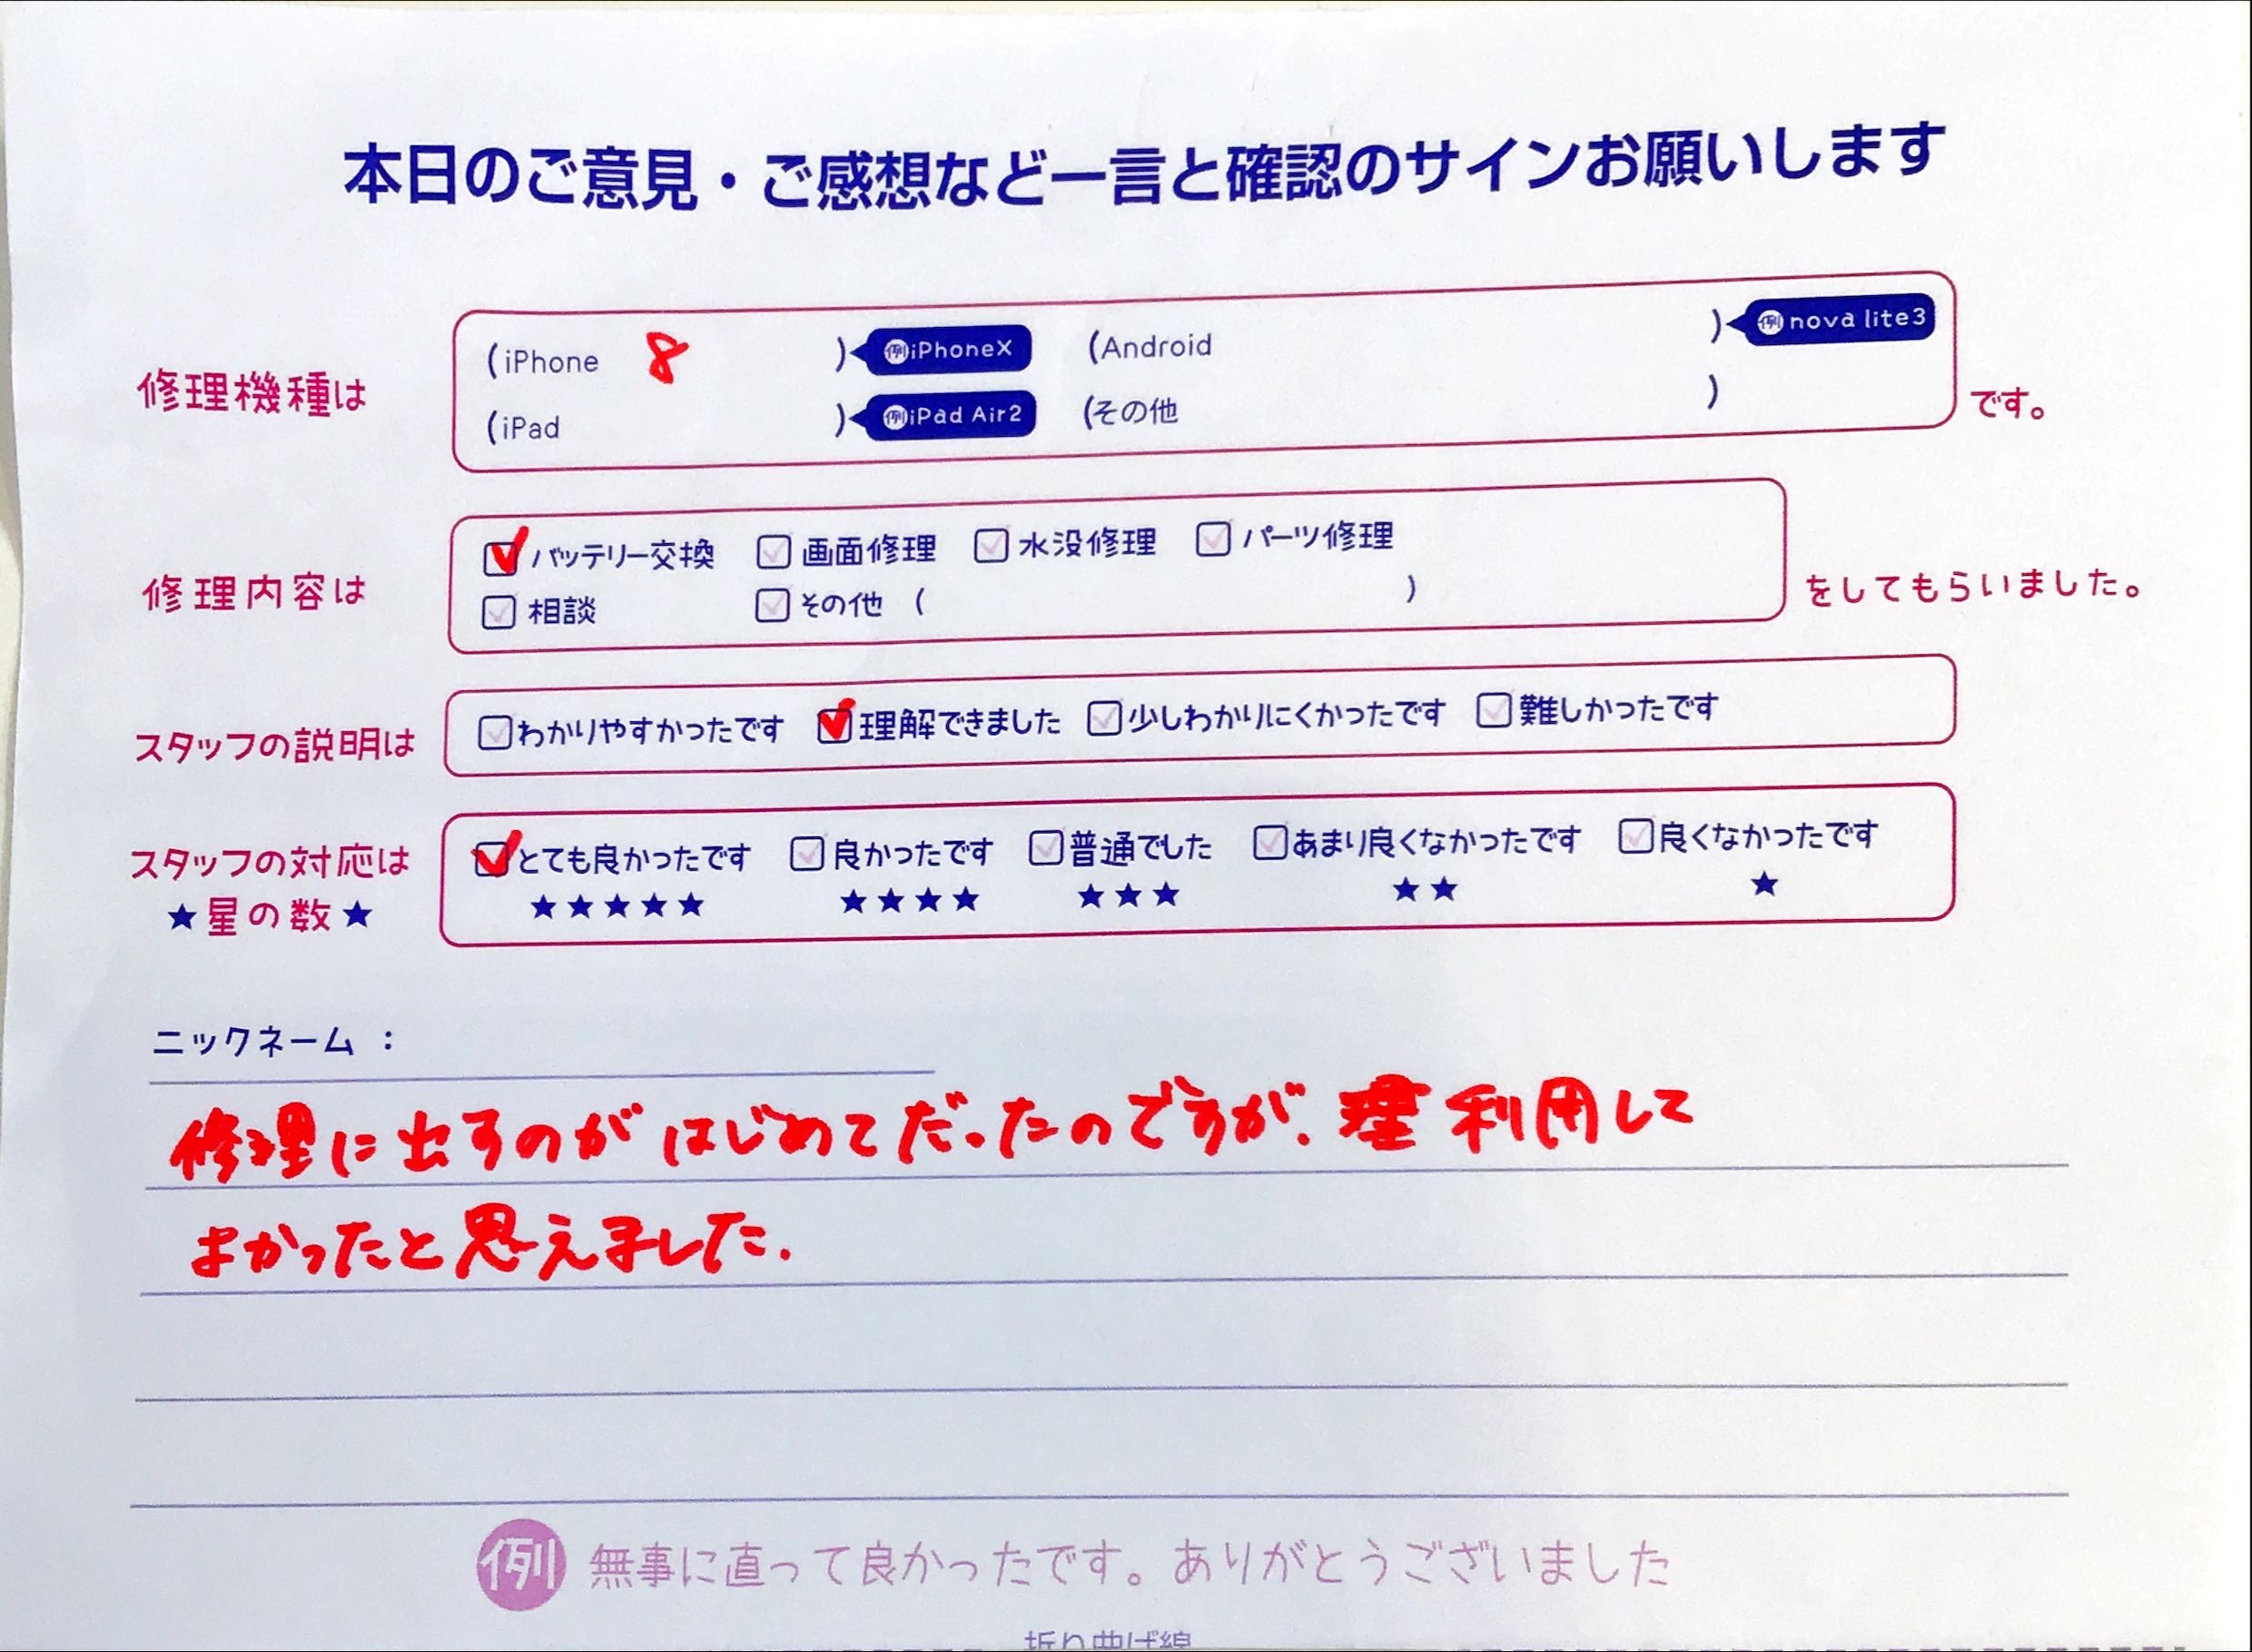 本日のご意見・ご感想など一言と確認のサインお願いします
修理機種は
(iPhone 8 ) 例iPhoneX (Android ) 例nova lite3
(iPad ) 例iPad Air2 (その他 )
です。
修理内容は
バッテリー交換 画面修理 水没修理 パーツ修理
相談 その他 ( )
をしてもらいました。
スタッフの説明は
わかりやすかったです 理解できました 少しわかりにくかったです 難しかったです
スタッフの対応は
★星の数★
とても良かったです 良かったです 普通でした あまり良くなかったです 良くなかったです
★★★★★ ★★★★ ★★★ ★★ ★
ニックネーム :
修理に出すのがはじめてだったのですが、利用して
よかったと思えました.
例 無事に直って良かったです。ありがとうございました
折り曲げ線